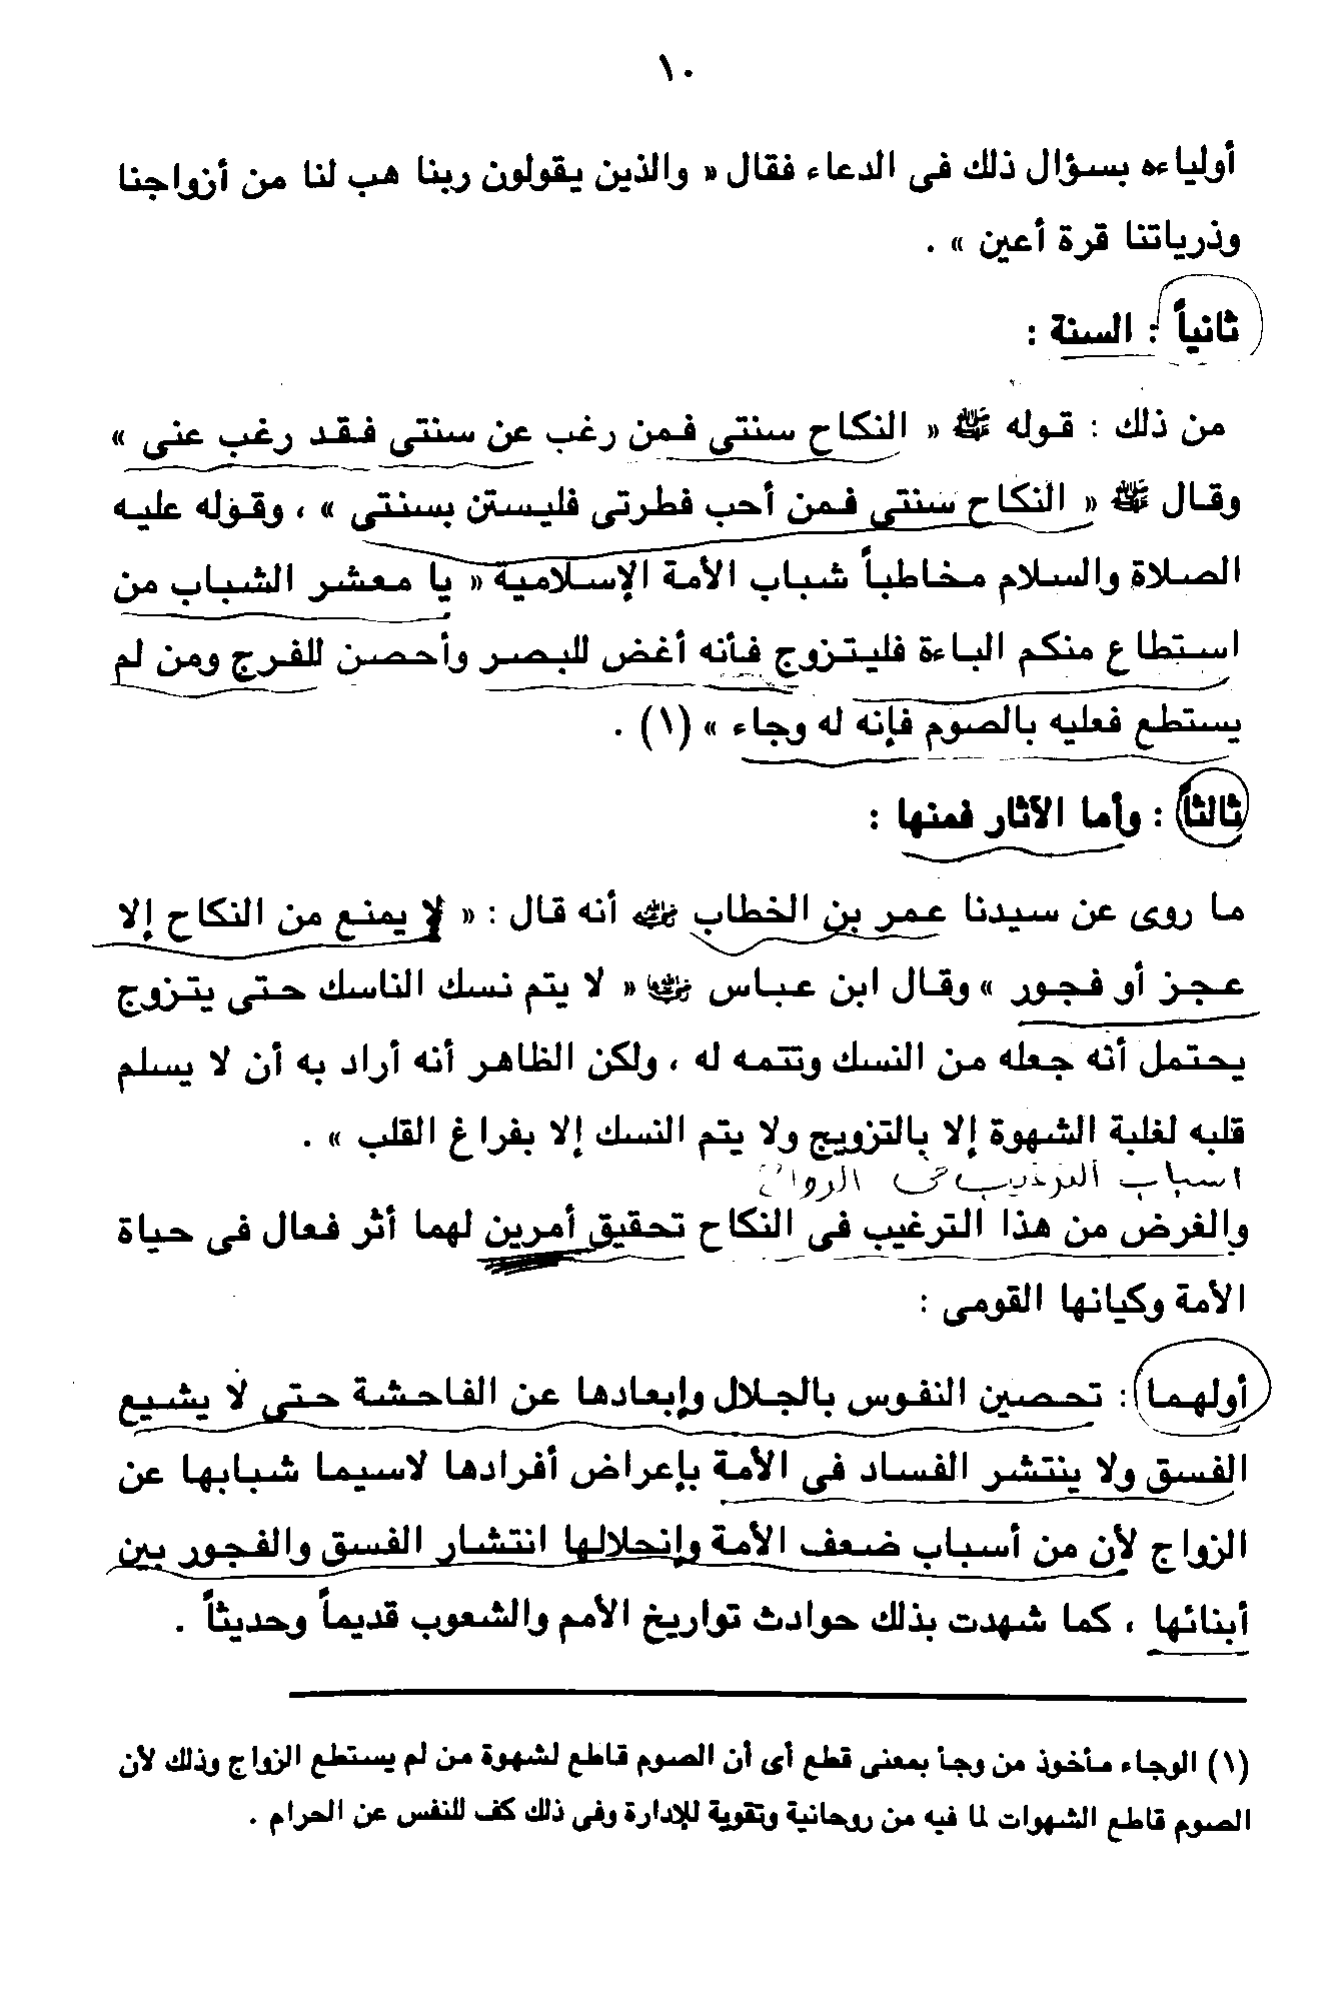 ١٠
أولياءه بسؤال ذلك فى الدعاء فقال « والذين يقولون ربنا هب لنا من أزواجنا
وذرياتنا قرة أعين » .
ثانياً : السنة :
من ذلك : قوله ﷺ « النكاح سنتى فمن رغب عن سنتى فقد رغب عنى »
وقال ﷺ « النكاح سنتى فمن أحب فطرتى فليستن بسنتى » ، وقوله عليه
الصلاة والسلام مخاطباً شباب الأمة الإسلامية « يا معشر الشباب من
استطاع منكم الباءة فليتزوج فأنه أغض للبصر وأحصن للفرج ومن لم
يستطع فعليه بالصوم فإنه له وجاء » (١) .
ثالثاً : وأما الآثار فمنها :
ما روى عن سيدنا عمر بن الخطاب رضي الله عنه أنه قال : « لا يمنع من النكاح إلا
عجز أو فجور » وقال ابن عباس رضي الله عنه « لا يتم نسك الناسك حتى يتزوج
يحتمل أنه جعله من النسك وتتمه له ، ولكن الظاهر أنه أراد به أن لا يسلم
قلبه لغلبة الشهوة إلا بالتزويج ولا يتم النسك إلا بفراغ القلب » .
اسباب الترغيب فى الزواج
والغرض من هذا الترغيب فى النكاح تحقيق أمرين لهما أثر فعال فى حياة
الأمة وكيانها القومى :
أولهما : تحصين النفوس بالجلال وإبعادها عن الفاحشة حتى لا يشيع
الفسق ولا ينتشر الفساد فى الأمة بإعراض أفرادها لاسيما شبابها عن
الزواج لأن من أسباب ضعف الأمة وإنحلالها انتشار الفسق والفجور بين
أبنائها ، كما شهدت بذلك حوادث تواريخ الأمم والشعوب قديماً وحديثاً .
(١) الوجاء مأخوذ من وجأ بمعنى قطع أى أن الصوم قاطع لشهوة من لم يستطع الزواج وذلك لأن
الصوم قاطع الشهوات لما فيه من روحانية وتقوية للإدارة وفى ذلك كف للنفس عن الحرام .